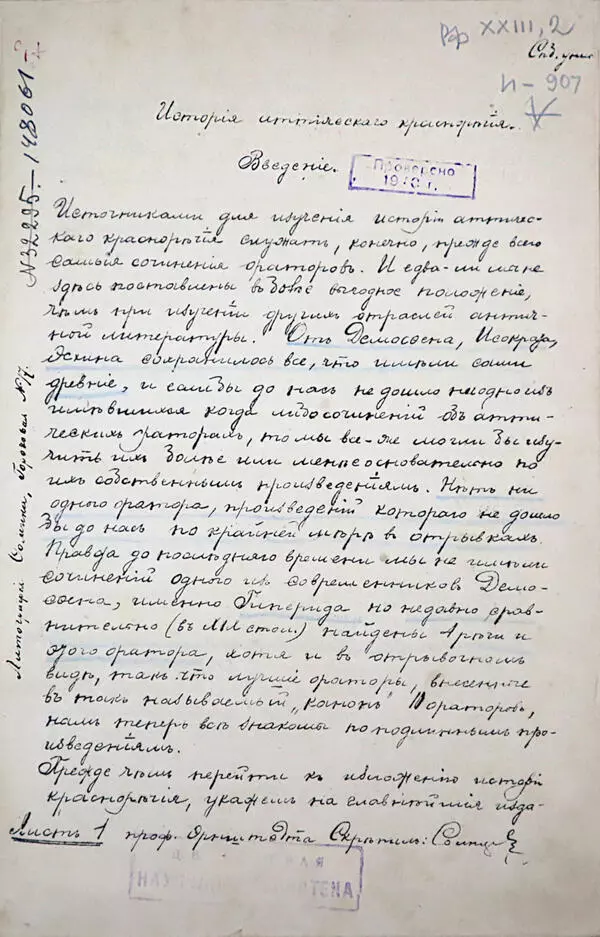 Рф XXIII, 2
Спб. унив
И-907
V
№32295.-148061
Исторія аттическаго краснорѣчія.
Введеніе.
Проверено
19 г.
Источниками для изученія исторіи аттичес-
каго краснорѣчія служатъ, конечно, прежде всего
самыя сочиненія ораторовъ. И едва-ли мы не
здѣсь поставлены въ болѣе выгодное положеніе,
чѣмъ при изученіи другихъ отраслей антич-
ной литературы. Отъ Демосѳена, Исократа,
Эсхина сохранилось все, что имѣли сами
древніе, и если бы до насъ не дошло ни одно изъ
имѣвшихся когда либо сочиненій объ атти-
ческихъ ораторахъ, то мы все-же могли бы изу-
чить ихъ болѣе или менѣе основательно по
ихъ собственнымъ произведеніямъ. Нѣтъ ни
одного оратора, произведеній котораго не дошло
бы до насъ по крайней мѣрѣ въ отрывкахъ.
Правда до послѣдняго времени мы не имѣли
сочиненій одного изъ современниковъ Демо-
сѳена, именно Гиперида но недавно срав-
нительно (въ XIX стол.) найдены 4 рѣчи и
этого оратора, хотя и въ отрывочномъ
видѣ, такъ что лучшіе ораторы, внесенные
въ такъ называемый „канонъ" 10 ораторовъ,
намъ теперь всѣ знакомы по подлиннымъ про-
изведеніямъ.
Прежде чѣмъ перейти къ изложенію исторіи
краснорѣчія, укажемъ на главнѣйшія изда-
Листъ 1 проф. Ернштедта Скрѣпилъ:
Литографія Гороховая №17.
НАУ ТЕКА